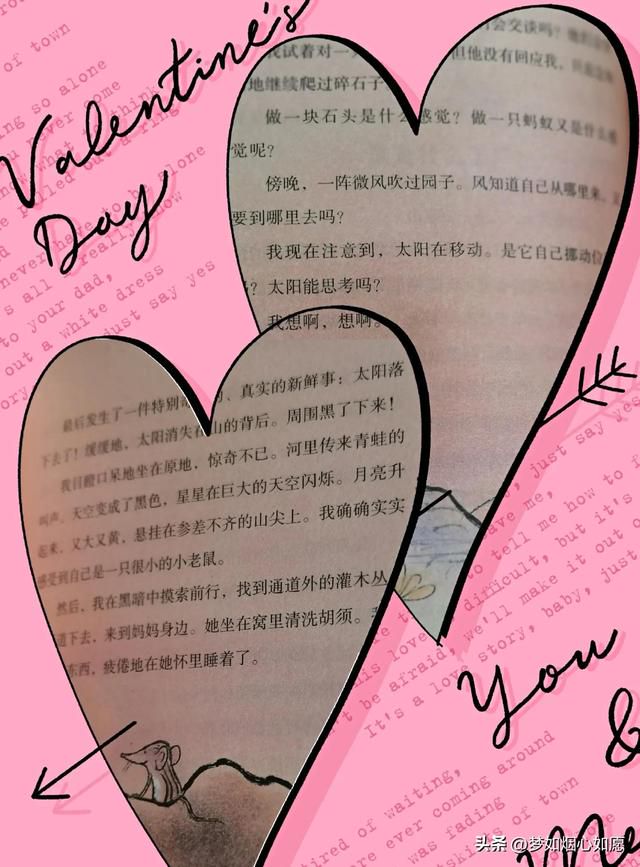 Valentine's
Day
会交谈吗？
我试着对一
但他没有回应我，
地继续爬过碎石子
做一块石头是什么感觉？做一只蚂蚁又是什么感
觉呢？
傍晚，一阵微风吹过园子。风知道自己从哪里来，又
要到哪里去吗？
我现在注意到，太阳在移动。是它自己挪动位
？太阳能思考吗？
我想啊，想啊。
最后发生了一件特别 的、真实的新鲜事：太阳落
下去了！缓缓地，太阳消失在山的背后。周围黑了下来！
我目瞪口呆地坐在原地，惊奇不已。河里传来青蛙的
叫声。天空变成了黑色，星星在巨大的天空闪烁。月亮升
起来，又大又黄，悬挂在参差不齐的山尖上。我确确实实
感受到自己是一只很小的小老鼠。
然后，我在黑暗中摸索前行，找到通道外的灌木丛
道下去，来到妈妈身边。她坐在窝里清洗胡须。
东西，疲倦地在她怀里睡着了。
of town
so alone
think
alone
know
never
to your dad,
out a white dress
just say yes
just say yes
save me,
to tell me how to
difficult, but it's
be afraid, we'll make it out of
It's a love story, baby, just
You
&
Me
tired of waiting,
ever coming around
was fading
of town
头条 @梦如烟心如愿